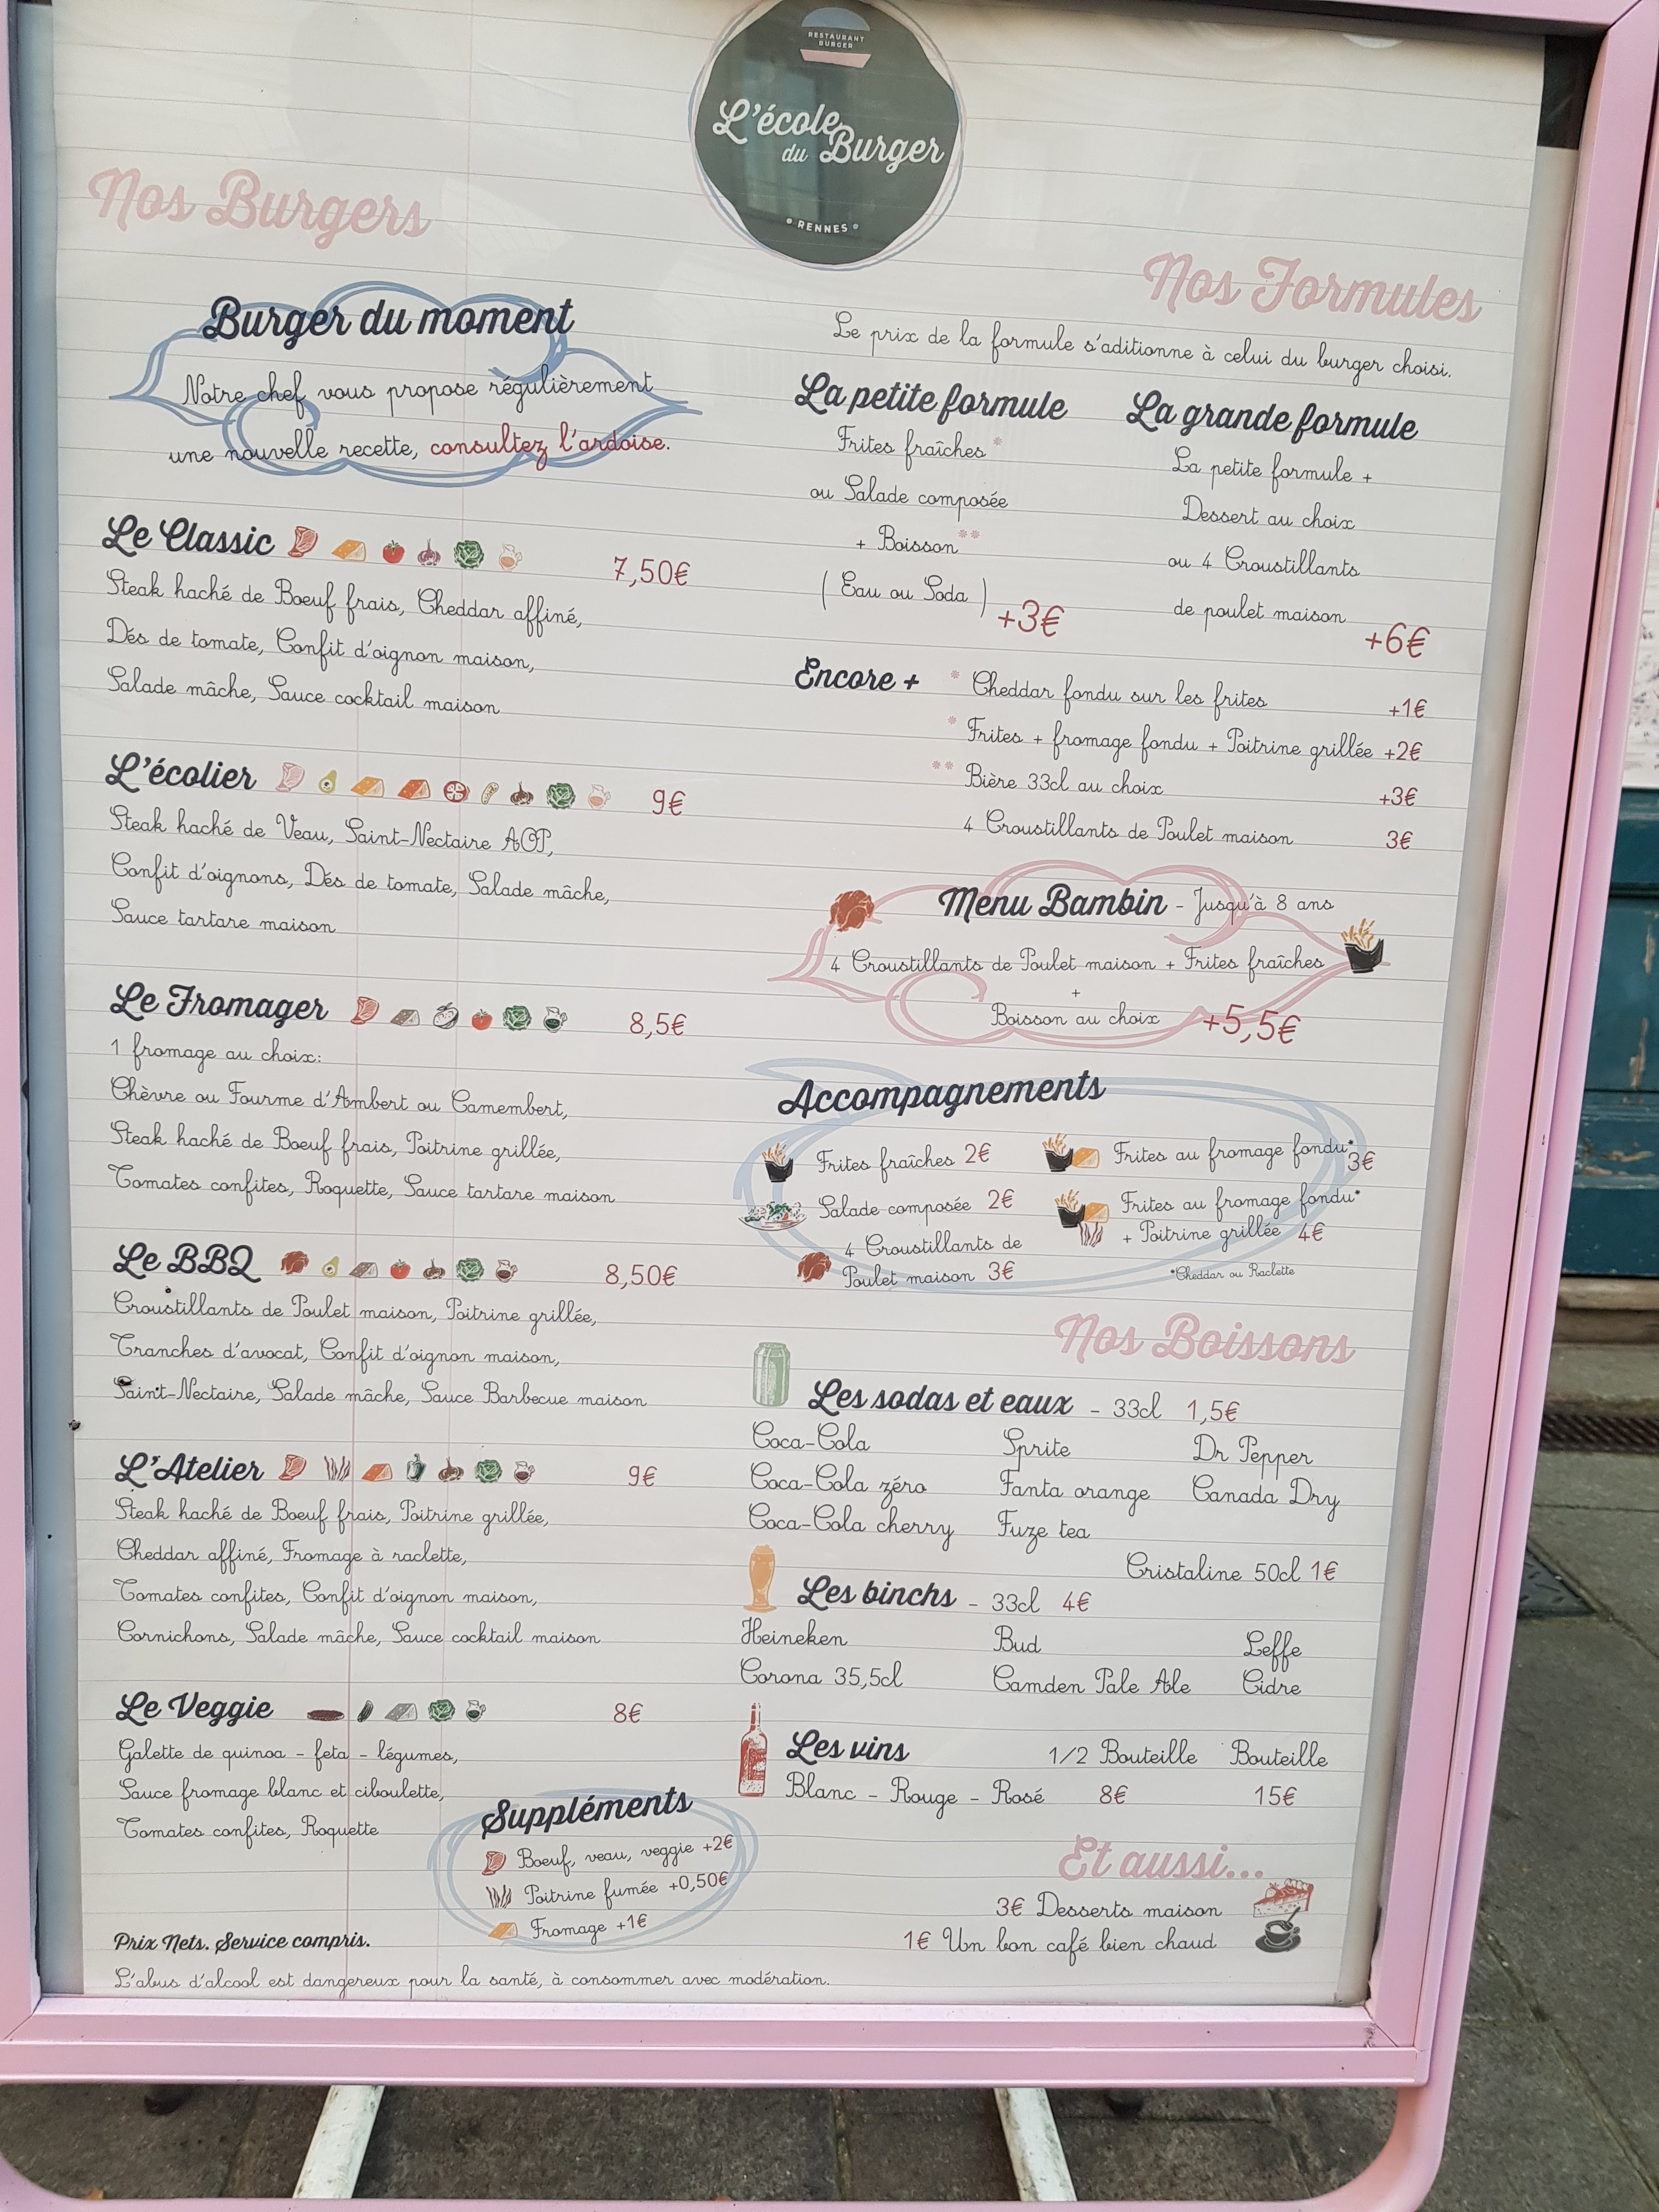 RESTAURANT
BURGER
L'école
du Burger
• RENNES •
Nos Burgers
Burger du moment
Notre chef vous propose régulièrement
une nouvelle recette, consultez l'ardoise.
Le Classic 7,50€
Steak haché de Boeuf frais, Cheddar affiné,
Dés de tomate, Confit d'oignon maison,
Salade mâche, Sauce cocktail maison
L'écolier 9€
Steak haché de Veau, Saint-Nectaire AOP,
Confit d'oignons, Dés de tomate, Salade mâche,
Sauce tartare maison
Le Fromager 8,5€
1 fromage au choix:
Chèvre ou Fourme d'Ambert ou Camembert,
Steak haché de Boeuf frais, Poitrine grillée,
Tomates confites, Roquette, Sauce tartare maison
Le BBQ 8,50€
Croustillants de Poulet maison, Poitrine grillée,
Tranches d'avocat, Confit d'oignon maison,
Saint-Nectaire, Salade mâche, Sauce Barbecue maison
L'Atelier 9€
Steak haché de Boeuf frais, Poitrine grillée,
Cheddar affiné, Fromage à raclette,
Tomates confites, Confit d'oignon maison,
Cornichons, Salade mâche, Sauce cocktail maison
Le Veggie 8€
Galette de quinoa - feta - légumes,
Sauce fromage blanc et ciboulette,
Tomates confites, Roquette
Suppléments
Boeuf, veau, veggie +2€
Poitrine fumée +0,50€
Fromage +1€
Prix Nets. Service compris.
L'abus d'alcool est dangereux pour la santé, à consommer avec modération.
Nos Formules
Le prix de la formule s'aditionne à celui du burger choisi.
La petite formule
Frites fraîches *
ou Salade composée
+ Boisson **
( Eau ou Soda ) +3€
La grande formule
La petite formule +
Dessert au choix
ou 4 Croustillants
de poulet maison +6€
Encore + * Cheddar fondu sur les frites +1€
* Frites + fromage fondu + Poitrine grillée +2€
** Bière 33cl au choix +3€
4 Croustillants de Poulet maison 3€
Menu Bambin - Jusqu'à 8 ans
4 Croustillants de Poulet maison + Frites fraîches
+
Boisson au choix +5,5€
Accompagnements
Frites fraîches 2€
Salade composée 2€
4 Croustillants de
Poulet maison 3€
Frites au fromage fondu* 3€
Frites au fromage fondu*
+ Poitrine grillée 4€
*Cheddar ou Raclette
Nos Boissons
Les sodas et eaux - 33cl 1,5€
Coca-Cola Sprite Dr Pepper
Coca-Cola zéro Fanta orange Canada Dry
Coca-Cola cherry Fuze tea
Cristaline 50cl 1€
Les binchs - 33cl 4€
Heineken Bud Leffe
Corona 35,5cl Camden Pale Ale Cidre
Les vins 1/2 Bouteille Bouteille
Blanc - Rouge - Rosé 8€ 15€
Et aussi...
3€ Desserts maison
1€ Un bon café bien chaud